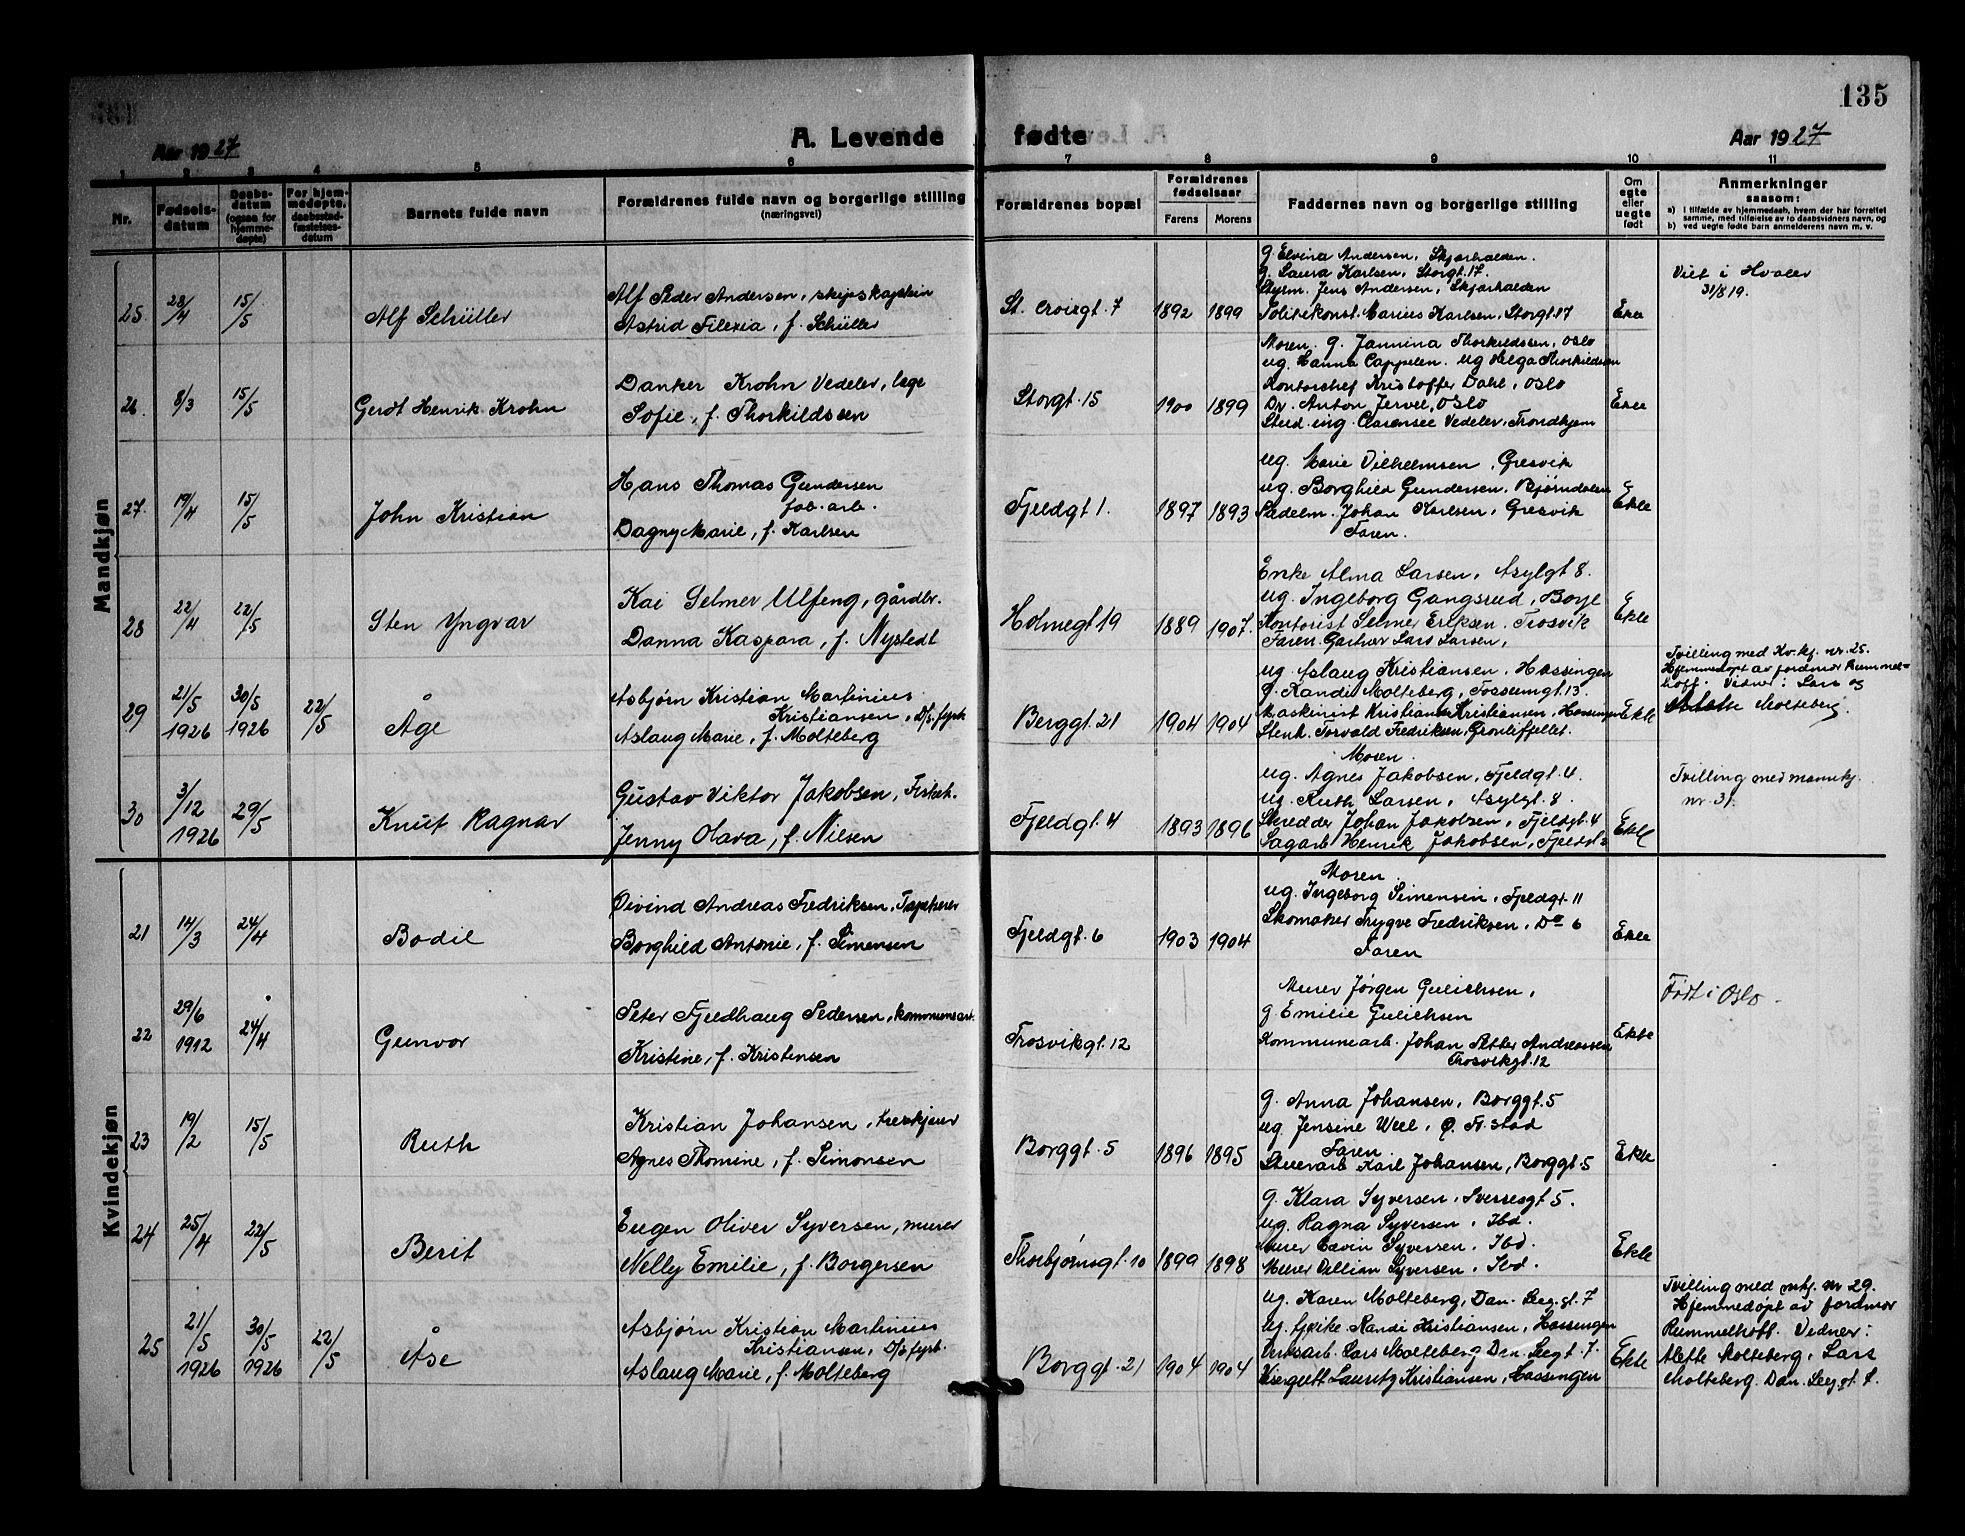 135
Aar 1927
A. Levende fødte
Aar 1927
1 2 3 4 5 6 7 8 9 10 11
Nr.
Fødsels-
datum
Daabs-
datum
(ogsaa for
hjemme-
døpte)
For hjem-
medøpte,
daabsstad-
fæstelses-
datum
Barnets fulde navn
Forældrenes fulde navn og borgerlige stilling
(næringsvei)
Forældrenes bopæl
Forældrenes
fødselsaar
Farens Morens
Faddernes navn og borgerlige stilling
Om
egte
eller
uegte
født
Anmerkninger
saasom:
a) i tilfælde av hjemmedaab, hvem der har forrettet
samme, med tilføielse av to daabsvidners navn, og
b) ved uegte fødte barn anmelderens navn m. v.
Mandkjøn
25. 23/4 15/5
Alf Schüller
Alf Peder Andersen, skipskaptein
Astrid Filexia, f. Schüller
St. Croixgt. 7
1892 1899
g. Elvina Andersen, Skjærhalden.
g. Laura Karlsen, Storgt. 17.
Styrm. Jens Andersen, Skjærhalden
Politikonst. Marius Karlsen, Storgt. 17
Ekte
Viet i Hvaler
31/8 19.
26. 8/3 15/5
Gerdt Henrik Krohn
Danker Krohn Vedeler, læge
Sofie, f. Thorkildssen
Storgt. 15
1900 1899
Moren. g. Jannina Thorkildssen, Oslo
ug. Hanna Cappelen. ug Helga Thorkildsen
Kontorchef Kristoffer Dahl, Oslo
Dr. Anton Jervel, Oslo
Stud. ing. Clarensee Vedeler, Trondhjem
Ekte
27. 19/4 15/5
John Kristian
Hans Thomas Gundersen
fab. arb.
Dagny Marie, f. Karlsen
Fjeldgt 1.
1897 1893
ug. Marie Vilhelmsen, Gresvik
ug. Borghild Gundersen, Bjørndalen
Sadelm. Johan Karlsen, Gresvik
Faren.
Ekte
28 22/4 22/5
Sten Yngvar
Kai Selmer Ulfeng, gårdbr.
Danna Kaspara, f. Nystedt
Holmegt 19
1889 1907.
Enke Alma Larsen, Asylgt 8.
ug. Ingeborg Gangsrud, Borge
Kontorist Selmer Eriksen, Trosvik
Faren. Gartner Lars Larsen,
Ekte
29 21/5 1926 30/5 1926 22/5
Åge
Asbjørn Kristian Martinius
Kristiansen, D/s. fyrb.
Aslaug Marie, f. Molteberg
Berggt. 21
1904 1904
ug. Aslaug Kristiansen, Hassingen
g. Randi Molteberg, Fossumgt. 13.
Maskinist Kristian Kristiansen, Hassingen
Stenh. Torvald Fredriksen, Grønlifjellet.
Ekte
Tvilling med Kv. kj. nr. 25.
Hjemmedøpt av jordmor Rummel-
hoff. Vidner: Lars og
Molteberg.
30 3/12 1926 29/5
Knut Ragnar
Gustav Viktor Jakobsen, Fiskeh.
Jenny Olava, f. Nilsen
Fjeldgt. 4
1893 1896
Moren
ug. Agnes Jakobsen, Fjeldgt. 4.
ug. Ruth Larsen, Asylgt. 8.
Skredder Johan Jakobsen, Fjeldgt. 4
Sagarb Henrik Jakobsen, Fjeldgt 2
Ekte
Tvilling med mannkj.
nr. 31.
Kvindekjøn
21 14/3 24/4
Bodil
Øivind Andreas Fredriksen, Tapetserer
Borghild Antonie, f. Simensen
Fjeldgt. 6
1903 1904
Moren
ug. Ingeborg Simensen, Fjeldgt. 11
Skomaker Trygve Fredriksen, Do 6
Faren
Ekte
22 29/6 1912 24/4
Gunvor
Peter Fjeldhaug Pedersen, kommunearb.
Kristine, f. Kristensen
Trosvikgt. 12
Murer Jørgen Gulichsen,
g. Emilie Gulichsen
Kommunearb. Johan Petter Andreassen
Trosvikgt. 12
Ekte
Født i Oslo
23 19/2 15/5
Ruth
Kristian Johansen,
Agnes Thomine, f. Simonsen
Borggt. 5
1896 1895
g. Anna Johansen, Borggt. 5
ug. Jensine Wiel, Ø. Fr. stad
Faren.
Stuerarb Karl Johansen, Borggt. 5
Ekte
24 25/4 22/5
Berit
Eugen Oliver Syversen, murer
Nelly Emilie, f. Borgersen
Thorbjørnsgt. 10
1899 1898
g. Klara Syversen, Sverresgt 5.
ug. Ragna Syversen, Ibd.
Murer Edvin Syversen, Ibd.
Murer Villian Syversen, Ibd.
Ekte
25 21/5 1926 30/5 1926 22/5
Åse
Asbjørn Kristian Martinius
Kristiansen, D/s. fyrb.
Aslaug Marie, f. Molteberg
Borggt. 21
1904 1904
ug. Karen Molteberg, Dan. Leeg. gt. 7
Randi Kristiansen, Hassingen
Verksarb. Lars Molteberg Dan. Leegt. 7.
Visergutt Lauritz Kristiansen, Hassingen
Ekte
Tvilling med mkj. nr 29.
Hjemmedøpt av jordmor
Rummelhoff. Vedner:
Alette Molteberg, Lars
Molteberg. Dan. Leeg. gt. 7.